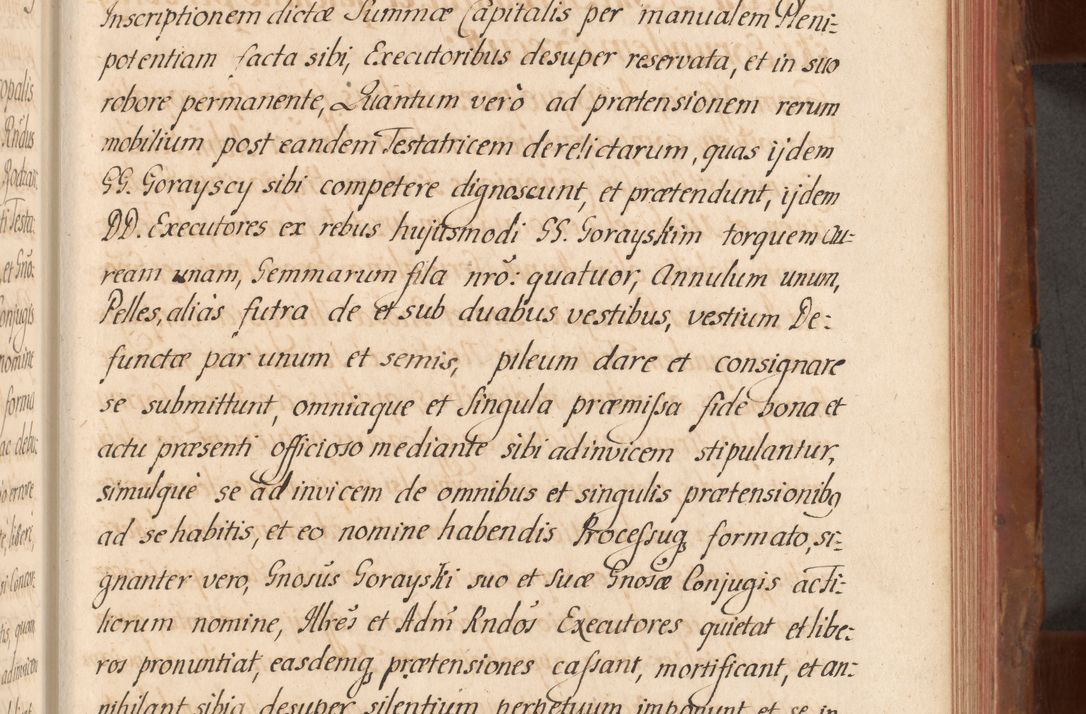 Inscriptionem dictæ Summæ Capitalis per manualem Pleni-
potentiam facta sibi, Executoribus desuper reservata, et in suo
robore permanente, Quantum verò ad prætensionem rerum
mobilium post eandem Testatricem derelictarum, quas ijdem
GG. Gorayscy sibi competere dignoscunt, et prætendunt, ijdem
DD. Executores ex rebus hujusmodi GG. Gorayskim torquem au-
ream unam, Gemmarum fila nrõ: quatuor, Annulum unum,
Pelles, aliàs futra de et sub duabus vestibus, vestium De-
functæ par unum et semis, pileum dare et consignare
se submittunt, omniaque et singula præmissa fide bona et
actu præsenti officioso mediante sibi adinvicem stipulantur,
simulque se ad invicem de omnibus et singulis prætensionibg
ad se habitis, et eo nomine habendis Processuq formato, si-
gnanter vero, Gnosus Gorayski suo et suæ Gnosæ Conjugis acti-
licrum nomine, Illres et Adm Rndos Executores quietat et libe-
ros pronuntiat, easdemq prætensiones cassant, mortificant, et an-
nihilant sibiq desuper silentium perpetuum imponunt et se in